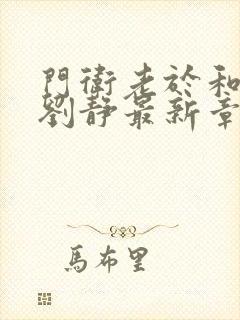 門衛老於和
劉靜最新章
馬布里